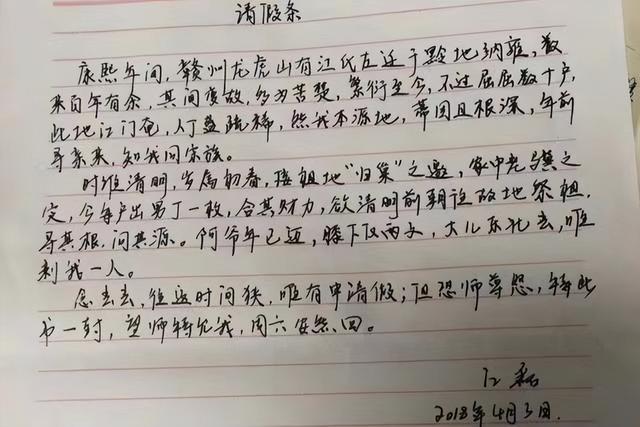 请假条
康熙年间，赣州龙虎山有江氏左迁于黔地纳雍，数
来百年有余，其间变故，多为苦楚，繁衍至今，不过屈屈数十户，
此地江门奄，人丁益稀，然我本源地，蒂固且根深，年前
寻亲来，知我同宗族。
时维清明，岁属初春，接祖地“归巢”之邀，家中老
定，今每户出男丁一枚，合其财力，欲清明前朝往故地祭祖，
寻其根，问其源。阿爷年已迈，膝下仅两丁，大儿东北去，唯
剩我一人。
念去去，往返时间狭，唯有申请假；但恐师尊怒，特此
书一封，望师特允我，周六安然回。
江磊
2018年4月3日.